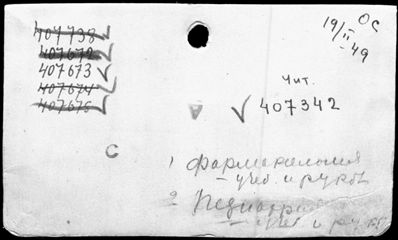 407738
407672
407673
407674
407675
ОС
19/II-49
Чит.
407342
А
С
1 Фармакология
– учеб. и руков
2 Педиатрия
– учеб и рук